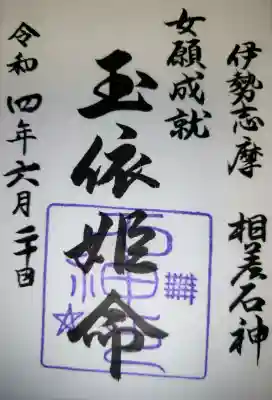 伊勢志摩　相差石神
女願成就
玉依姫命
令和四年六月二十日